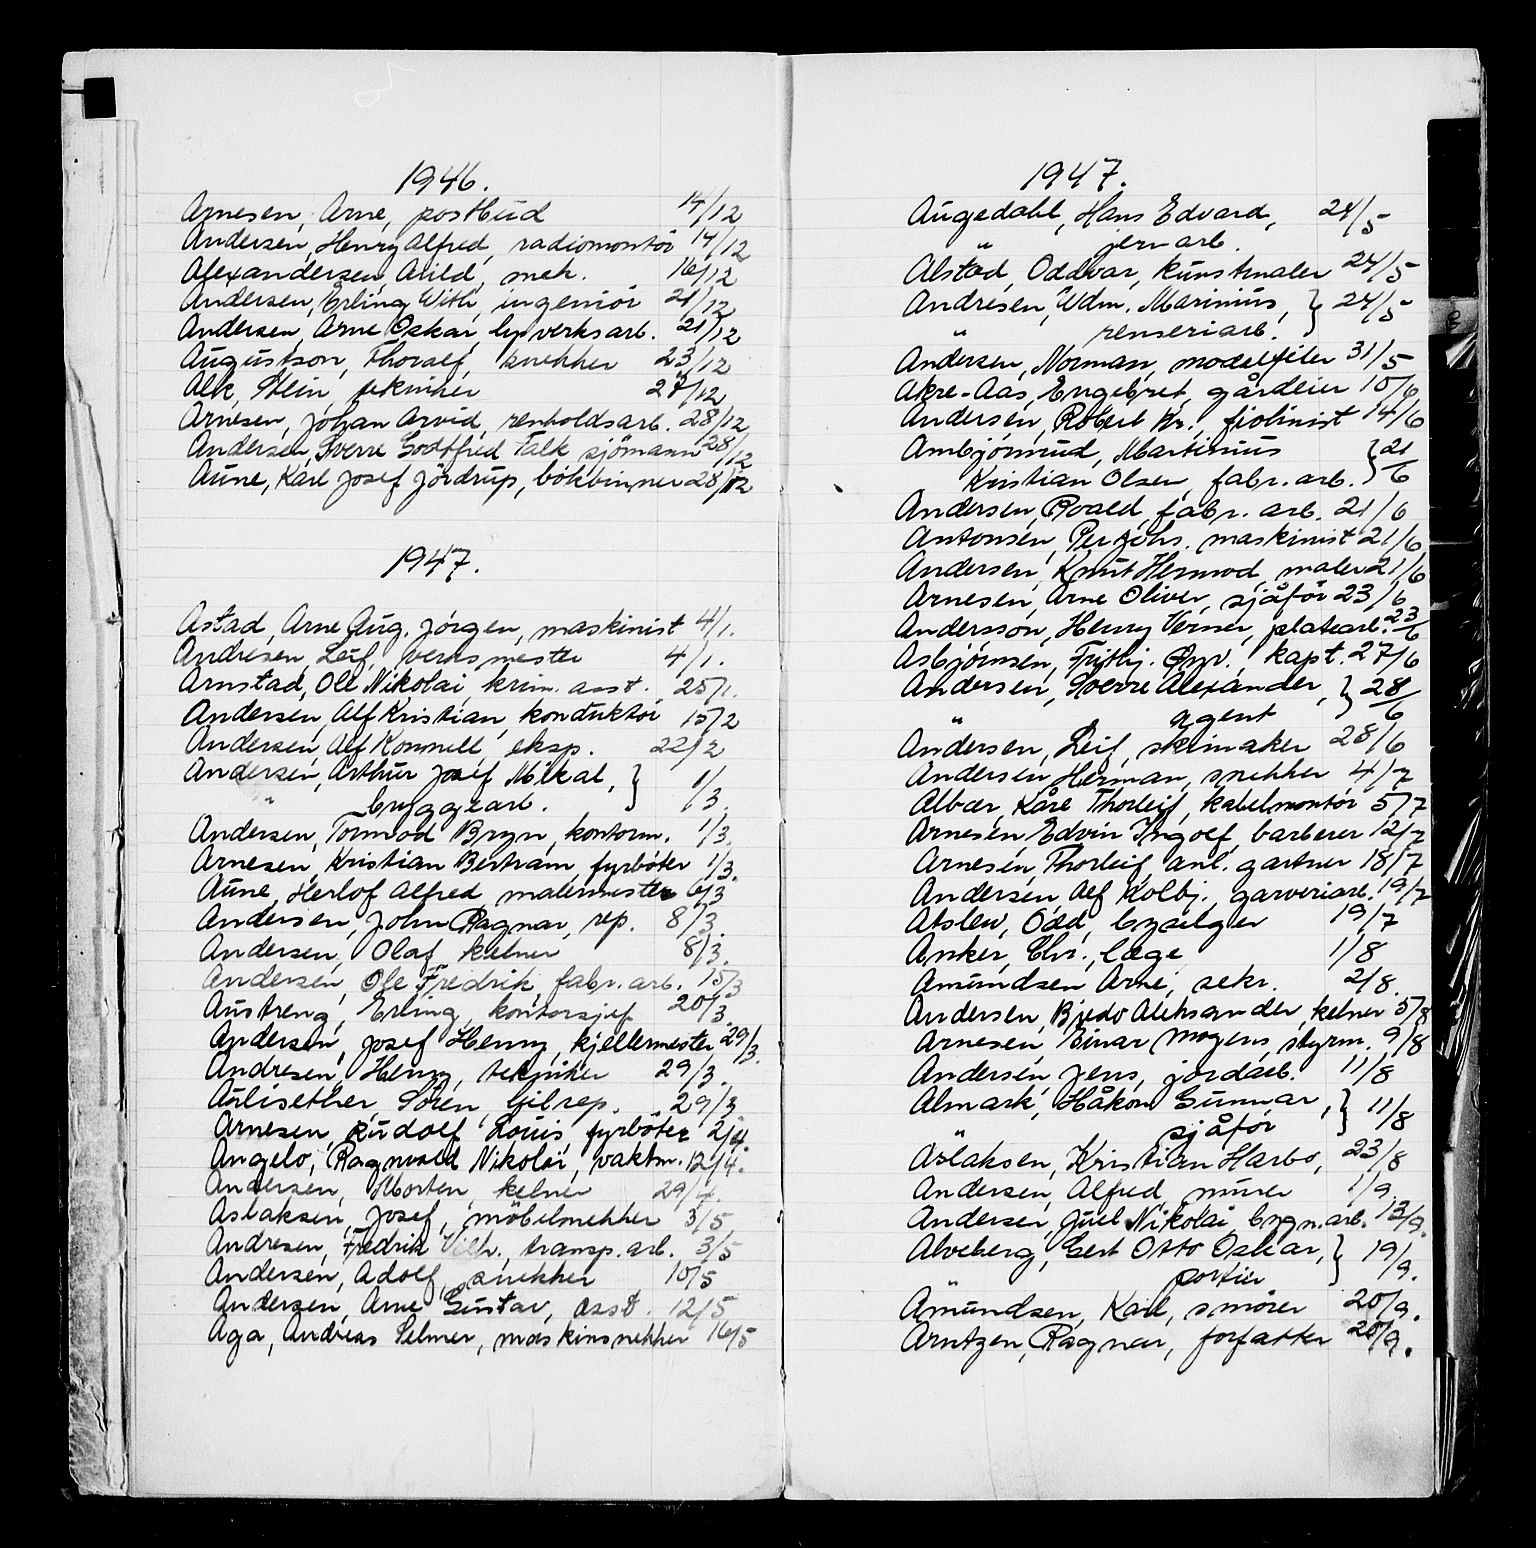 1946.
Arnesen, Arne, postbud 14/12
Andersen, Henry Alfred, radiomontör 14/12
Alexandersen, Arild, mek. 16/12
Andersen, Erling With, ingeniör 21/12
Andersen, Arne Oskar, lysverksarb. 21/12
Augustson, Thoralf, snekker 23/12
Alk, Stein, tekniker 27/12
Arnesen, Johan Arvid, renholdsarb. 28/12
Andersen, Sverre Godtfred Falk, sjömann 28/12
Aune, Karl Josef Jördrup, bokbinner 28/12
1947.
Åstad, Arne Aug. Jörgen, maskinist 4/1.
Andresen, Leif, verksmester 4/1.
Arnstad, Ole Nikolai, krim. asst. 25/1.
Andersen, Alf Kristian, konduktör 15/2
Andersen, Alf Kornell, eksp. 22/2
Andersen, Arthur Josef Mikal, } 1/3.
" byggearb.
Andersen, Tormod Bryn, kontorm. 1/3.
Arnesen, Kristian Bertram, fyrböter 1/3.
Aune, Herlof Alfred, malermester 6/3
Andersen, John Ragnar, rep. 8/3.
Andersen, Olaf, kelner 8/3.
Andersen, Ole Fredrik, fabr. arb. 15/3
Austreng, Erling, kontorsjef 20/3.
Andersen, Josef Henry, kjellermester 29/3.
Andresen, Henry, tekniker 29/3.
Aulisether, Sören, bilrep. 29/3
Arnesen, Rudolf Louis, fyrböter 2/4.
Angelo, Ragnvald Nikolai, vaktm. 12/4.
Andersen, Morten, kelner 29/4.
Aslaksen, Josef, möbelsnekker 3/5
Andresen, Fredrik Vilh., transp. arb. 3/5
Andersen, Adolf, snekker 10/5
Andersen, Arne Gustav, asst. 12/5
Aga, Andreas Selmer, maskinsnekker 16/5
1947.
Augedahl, Hans Edvard, 24/5
" jernarb.
Alstad, Oddvar, kunstmaler 24/5
Andresen, Wdm. Marinius, } 24/5
" renseriarb.
Andersen, Norman, modellfiler 31/5
Åkre-Aas, Engebret, gårdeier 10/6
Andersen, Robert Kr., fiolinist 14/6
Ambjörnrud, Martinius } 21/6
Kristian Olsen, fabr. arb.
Andersen, Roald, fabr. arb. 21/6
Antonsen, Per Johs. maskinist 21/6
Andersen, Knut Hermod, maler 21/6
Arnesen, Arne Oliver, sjåför 23/6
Andersson, Henry Verner, platearb. 23/6
Asbjörnsen, Fritbj. Öyv., kapt. 27/6
Andersen, Sverre Alexander, } 28/6
" agent
Andersen, Leif, skimaker 28/6
Andersen, Herman, snekker 4/7
Albær, Kåre Thorleif, kabelmontör 5/7
Arnesen, Edvin Ingolf, barberer 12/7
Arnesen, Thorleif, anl. gartner 18/7
Andersen, Alf Kolbj., garveriarb. 19/7
Atslew, Odd, byselger 19/7
Anker, Chr., læge 1/8
Amundsen, Arne, sekr. 2/8.
Andersen, Aleksander, kelner 5/8
Arnesen, Einar Mogens, styrm. 9/8
Andersen, Jens, jordarb. 11/8
Almark, Håkon Gunnar, } 11/8
sjåför
Åslaksen, Kristian Harbo, 23/8
Andersen, Alfred, murer 1/9.
Andersen, Juel Nikolai, bygn. arb. 13/9.
Alveberg, Gert Otto Oskar, } 19/9.
portier
Amundsen, Karl, smörer 20/9.
Arntzen, Ragnar, forfatter 20/9.